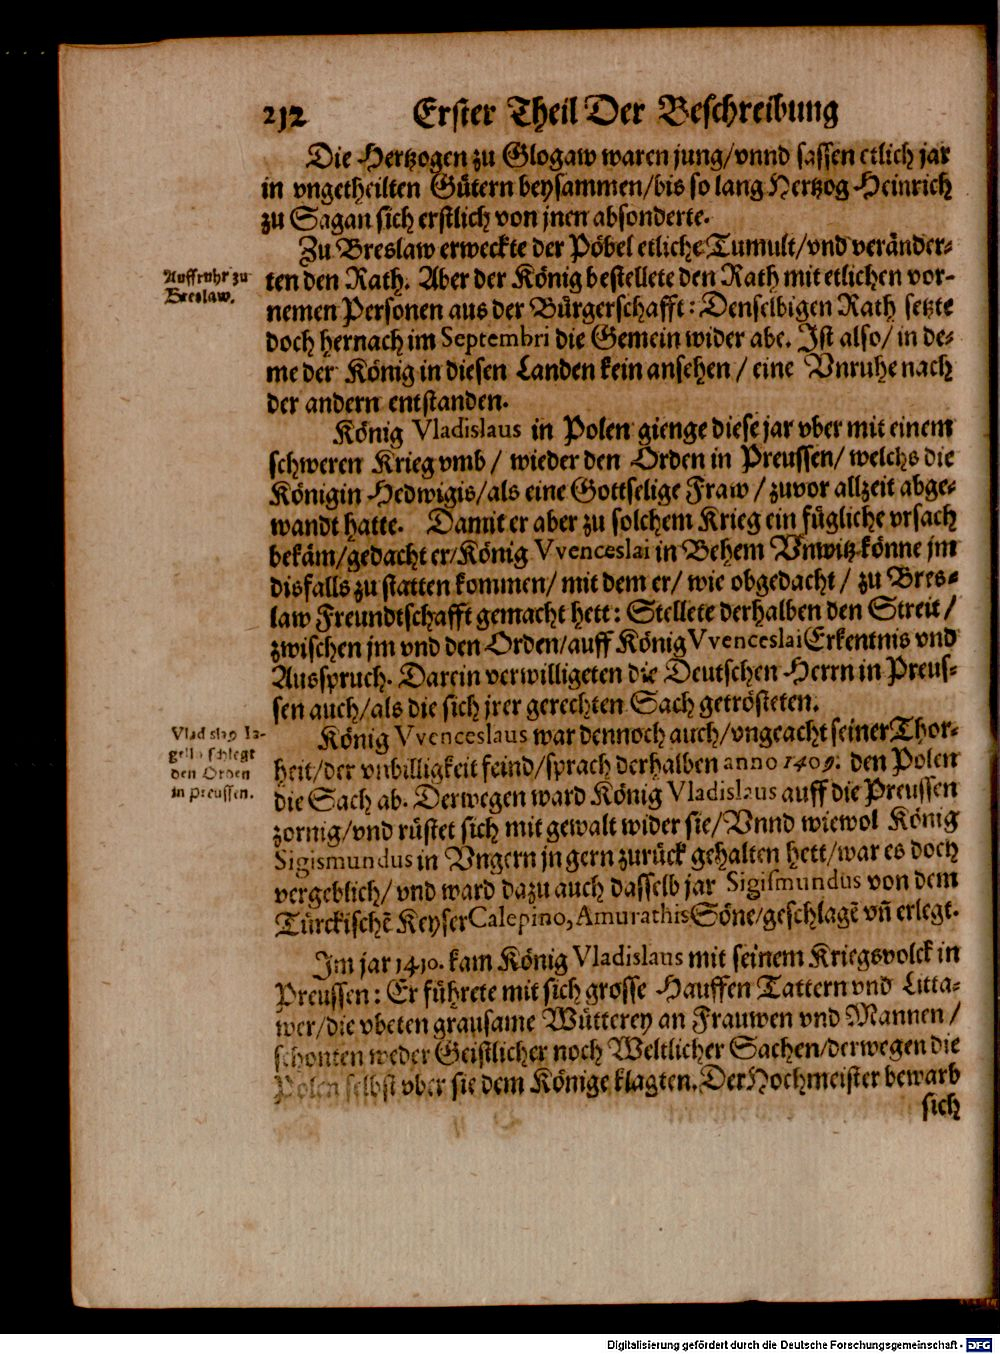 212 Erster Theil Der Beschreibung
Die Hertzogen zu Glogaw waren jung/vnnd sassen etlich jar
in vngetheilten Gütern beysammen/bis so lang Hertzog Heinrich
zu Sagan sich erstlich von jnen absonderte.
Zu Breslaw erweckte der Pöbel etliche Tumult/vnd veränder-
Auffruhr zu
Breslaw.
ten den Rath. Aber der König bestellete den Rath mit etlichen vor-
nemen Personen aus der Bürgerschafft: Denselbigen Rath setzte
doch hernach im Septembri die Gemein wider abe. Ist also/ in de-
me der König in diesen Landen kein ansehen / eine Vnruhe nach
der andern entstanden.
König Vladislaus in Polen gienge diese jar vber mit einem
schweren Krieg vmb / wieder den Orden in Preussen/ welchs die
Königin Hedwigis/als eine Gottselige Fraw / zuvor allzeit abge-
wandt hatte. Damit er aber zu solchem Krieg ein fügliche vrsach
bekäm/gedacht er/König Vvenceslai in Behem Vnwitz könne jm
disfalls zu statten kommen/ mit dem er/ wie obgedacht / zu Bres-
law Freundtschafft gemacht hett: Stellete derhalben den Streit /
zwischen jm vnd den Orden/auff König Vvenceslai Erkentnis vnd
Ausspruch. Darein verwilligeten die Deutschen Herrn in Preus-
sen auch/als die sich jrer gerechten Sach getrösteten.
Vladislaꝰ Ia-
gello schlegt
den Orden
in Preussen.
König Vvenceslaus war dennoch auch/vngeacht seiner Thor-
heit/der vnbilligkeit feind/sprach derhalben anno 1409. den Polen
die Sach ab. Derwegen ward König Vladislaus auff die Preussen
zornig/vnd rüstet sich mit gewalt wider sie/Vnnd wiewol König
Sigismundus in Vngern jn gern zurück gehalten hett/war es doch
vergeblich/ vnd ward dazu auch dasselb jar Sigismundus von dem
Türckischẽ Keyser Calepino, Amurathis Söne/geschlagẽ vñ erlegt.
Im jar 1410. kam König Vladislaus mit seinem Kriegsvolck in
Preussen: Er führete mit sich grosse Hauffen Tattern vnd Litta-
wer/die vbeten grausame Wütterey an Frauwen vnd Mannen /
schonten weder Geistlicher noch Weltlicher Sachen/derwegen die
Polen selbst vber sie dem Könige klagten. Der Hochmeister bewarb
sich
Digitalisierung gefördert durch die Deutsche Forschungsgemeinschaft - DFG